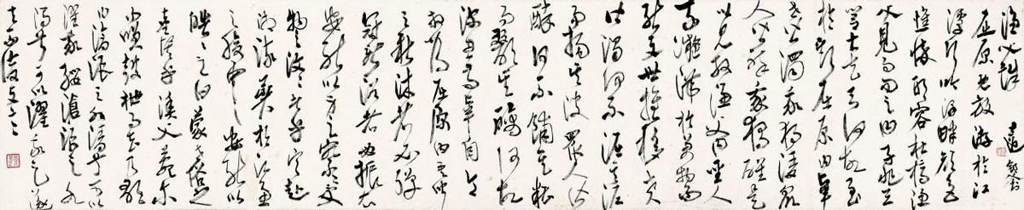 漁父辭
屈原既放游於江
潭行吟澤畔顏色
憔悴形容枯槁漁
父見而問之曰子非三
閭大夫與何故至
於斯屈原曰舉
世皆濁我獨清眾
人皆醉我獨醒是
以見放漁父曰聖人
不凝滯於萬物
而能與世推移
世人皆濁何不淈其泥
而揚其波眾人皆
醉何不餔其糟
而歠其醨何故
深思高舉自令
放為屈原曰吾聞
之新沐者必彈
冠新浴者必振衣
安能以身之察察受
物之汶汶者乎寧赴
湘流葬於江魚
之腹中安能以
皓皓之白蒙世俗之
塵埃乎漁父莞爾
而笑鼓枻而去乃歌
曰滄浪之水清兮可以
濯我纓滄浪之水
濁兮可以濯吾足遂
去不復與言